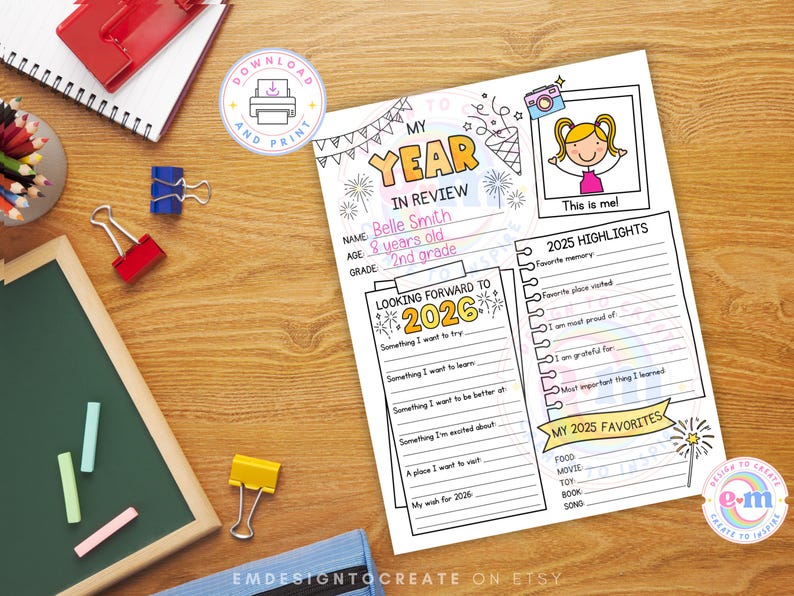 DOWNLOAD
AND PRINT
MY
YEAR
IN REVIEW
NAME: Belle Smith
AGE: 8 years old
GRADE: 2nd grade
This is me!
LOOKING FORWARD TO
2026
Something I want to try:
Something I want to learn:
Something I want to be better at:
Something I'm excited about:
A place I want to visit:
My wish for 2026:
2025 HIGHLIGHTS
Favorite memory:
Favorite place visited:
I am most proud of:
I am grateful for:
Most important thing I learned:
MY 2025 FAVORITES
FOOD:
MOVIE:
TOY:
BOOK:
SONG:
DESIGN TO CREATE
e♥m
CREATE TO INSPIRE
EMDESIGNTOCREATE ON ETSY